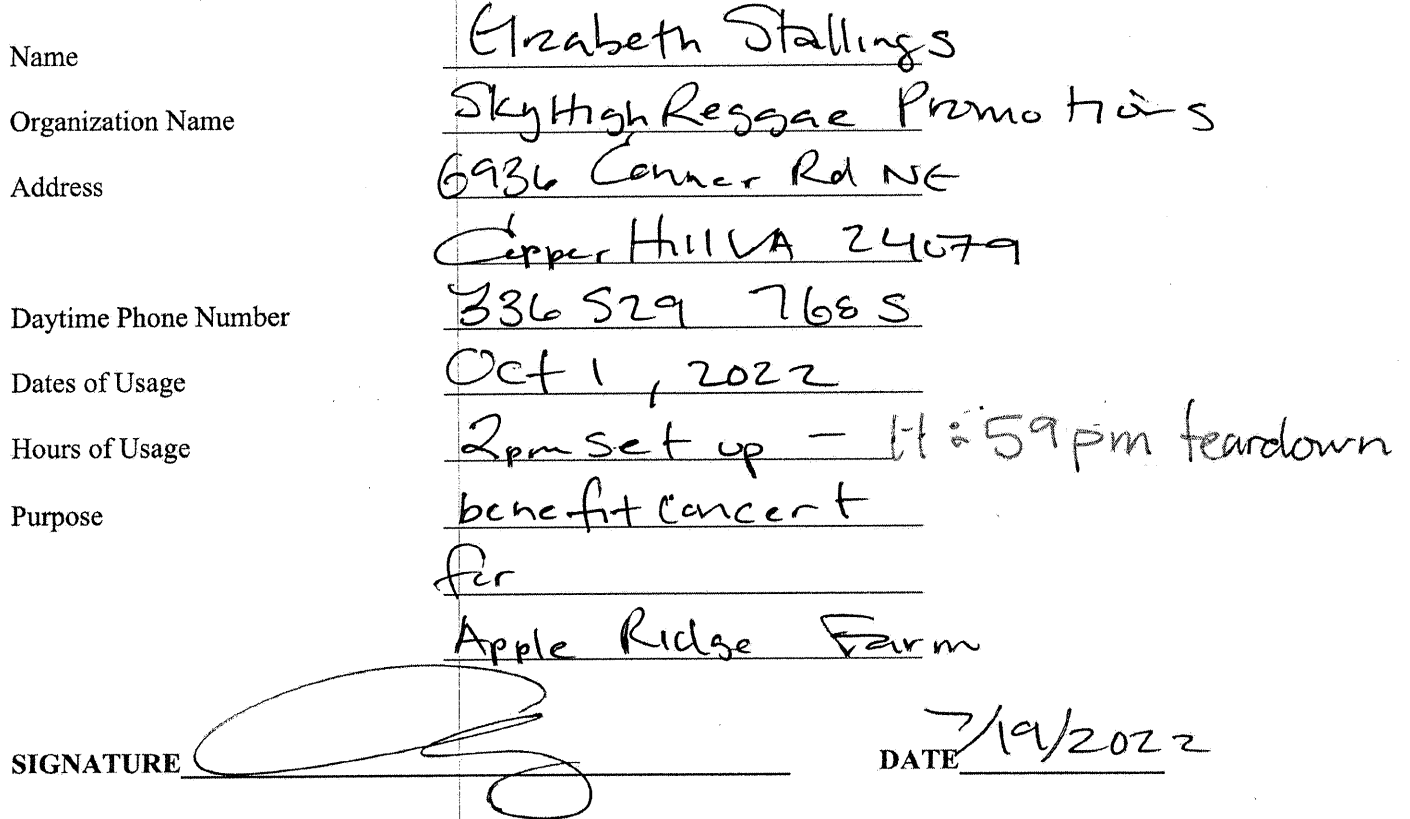 Name Elizabeth Stallings
Organization Name SkyHigh Reggae Promotions
Address 6936 Conner Rd NE
Copper Hill VA 24079
Daytime Phone Number 336 529 7685
Dates of Usage Oct 1, 2022
Hours of Usage 2pm set up - 11:59pm teardown
Purpose benefit concert
for
Apple Ridge Farm
SIGNATURE DATE 7/19/2022